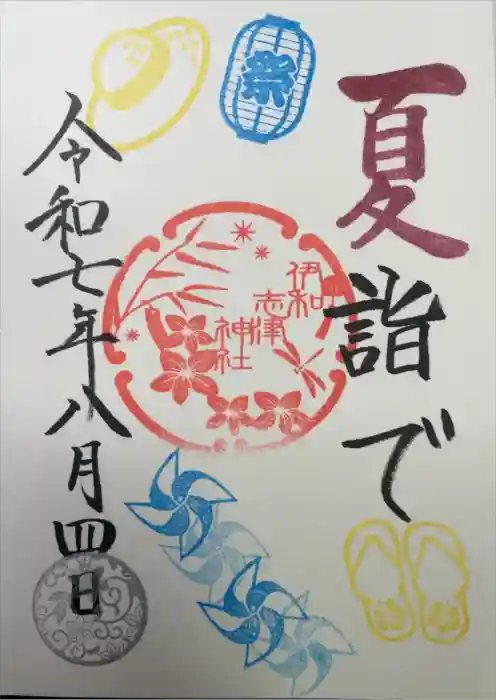 夏詣で
祭
伊和
志津
神社
令和七年八月四日